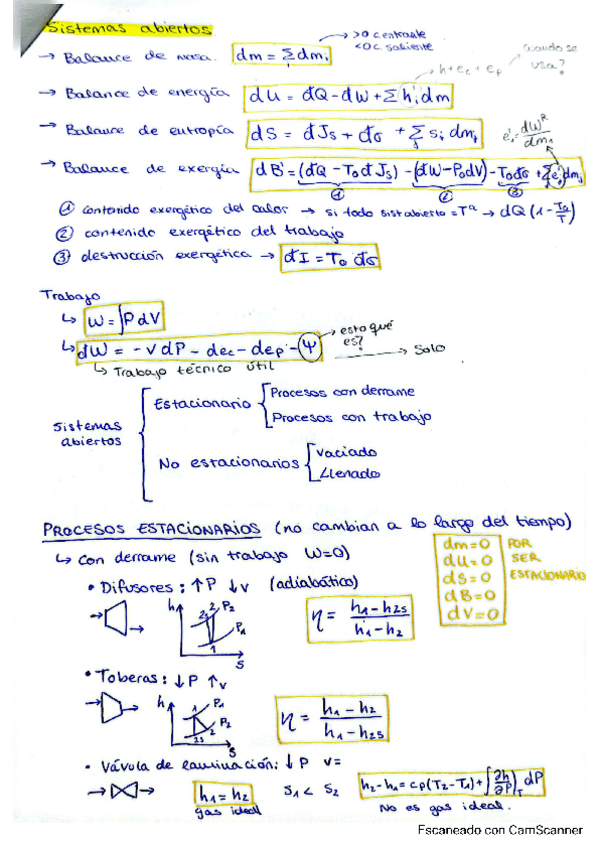 Sistemas abiertos
>0 c. entrante
<0 c. saliente
→ Balance de masa. dm = Σᵢ dmᵢ
→ h + ec + ep
cuando se usa?
→ Balance de energía dU = đQ - đW + Σ hᵢ' dm
→ Balance de eutropía dS = đJs + đσ + Σ sᵢ dmᵢ
→ Balance de exergía dB' = (đQ - T₀ đJs) - (đW - P₀dV) - T₀đσ + Σ eᵢ' dmᵢ
① ② ③
① contenido exergético del calor → si todo sist abierto = Tª → dQ (1 - T₀/T)
② contenido exergético del trabajo
③ destrucción exergética → đI = T₀ đσ
Trabajo
↳ W = ∫P dV
↳ đW = - v dP - dec - dep - Ψ → esto qué es?
→ Solo
↳ Trabajo técnico útil
Sistemas abiertos
Estacionario
Procesos con derrame
Procesos con trabajo
No estacionarios
Vaciado
Llenado
PROCESOS ESTACIONARIOS (no cambian a lo largo del tiempo)
↳ con derrame (sin trabajo W=0)
dm=0
dU=0
dS=0
dB=0
dV=0
POR
SER
ESTACIONARIO
• Difusores: ↑P ↓v (adiabático)
h 2s 2 P₂ P₁ 1 S
η = (h₁ - h₂s) / (h₁ - h₂)
• Toberas: ↓P ↑v
h 1 P₁ P₂ 2 2s S
η = (h₁ - h₂) / (h₁ - h₂s)
• Vávula de laminación: ↓P v=
h₁ = h₂
gas ideal
S₁ < S₂
h₂ - h₁ = cp (T₂ - T₁) + ∫ (∂h/∂P)T dP
No es gas ideal.
Escaneado con CamScanner